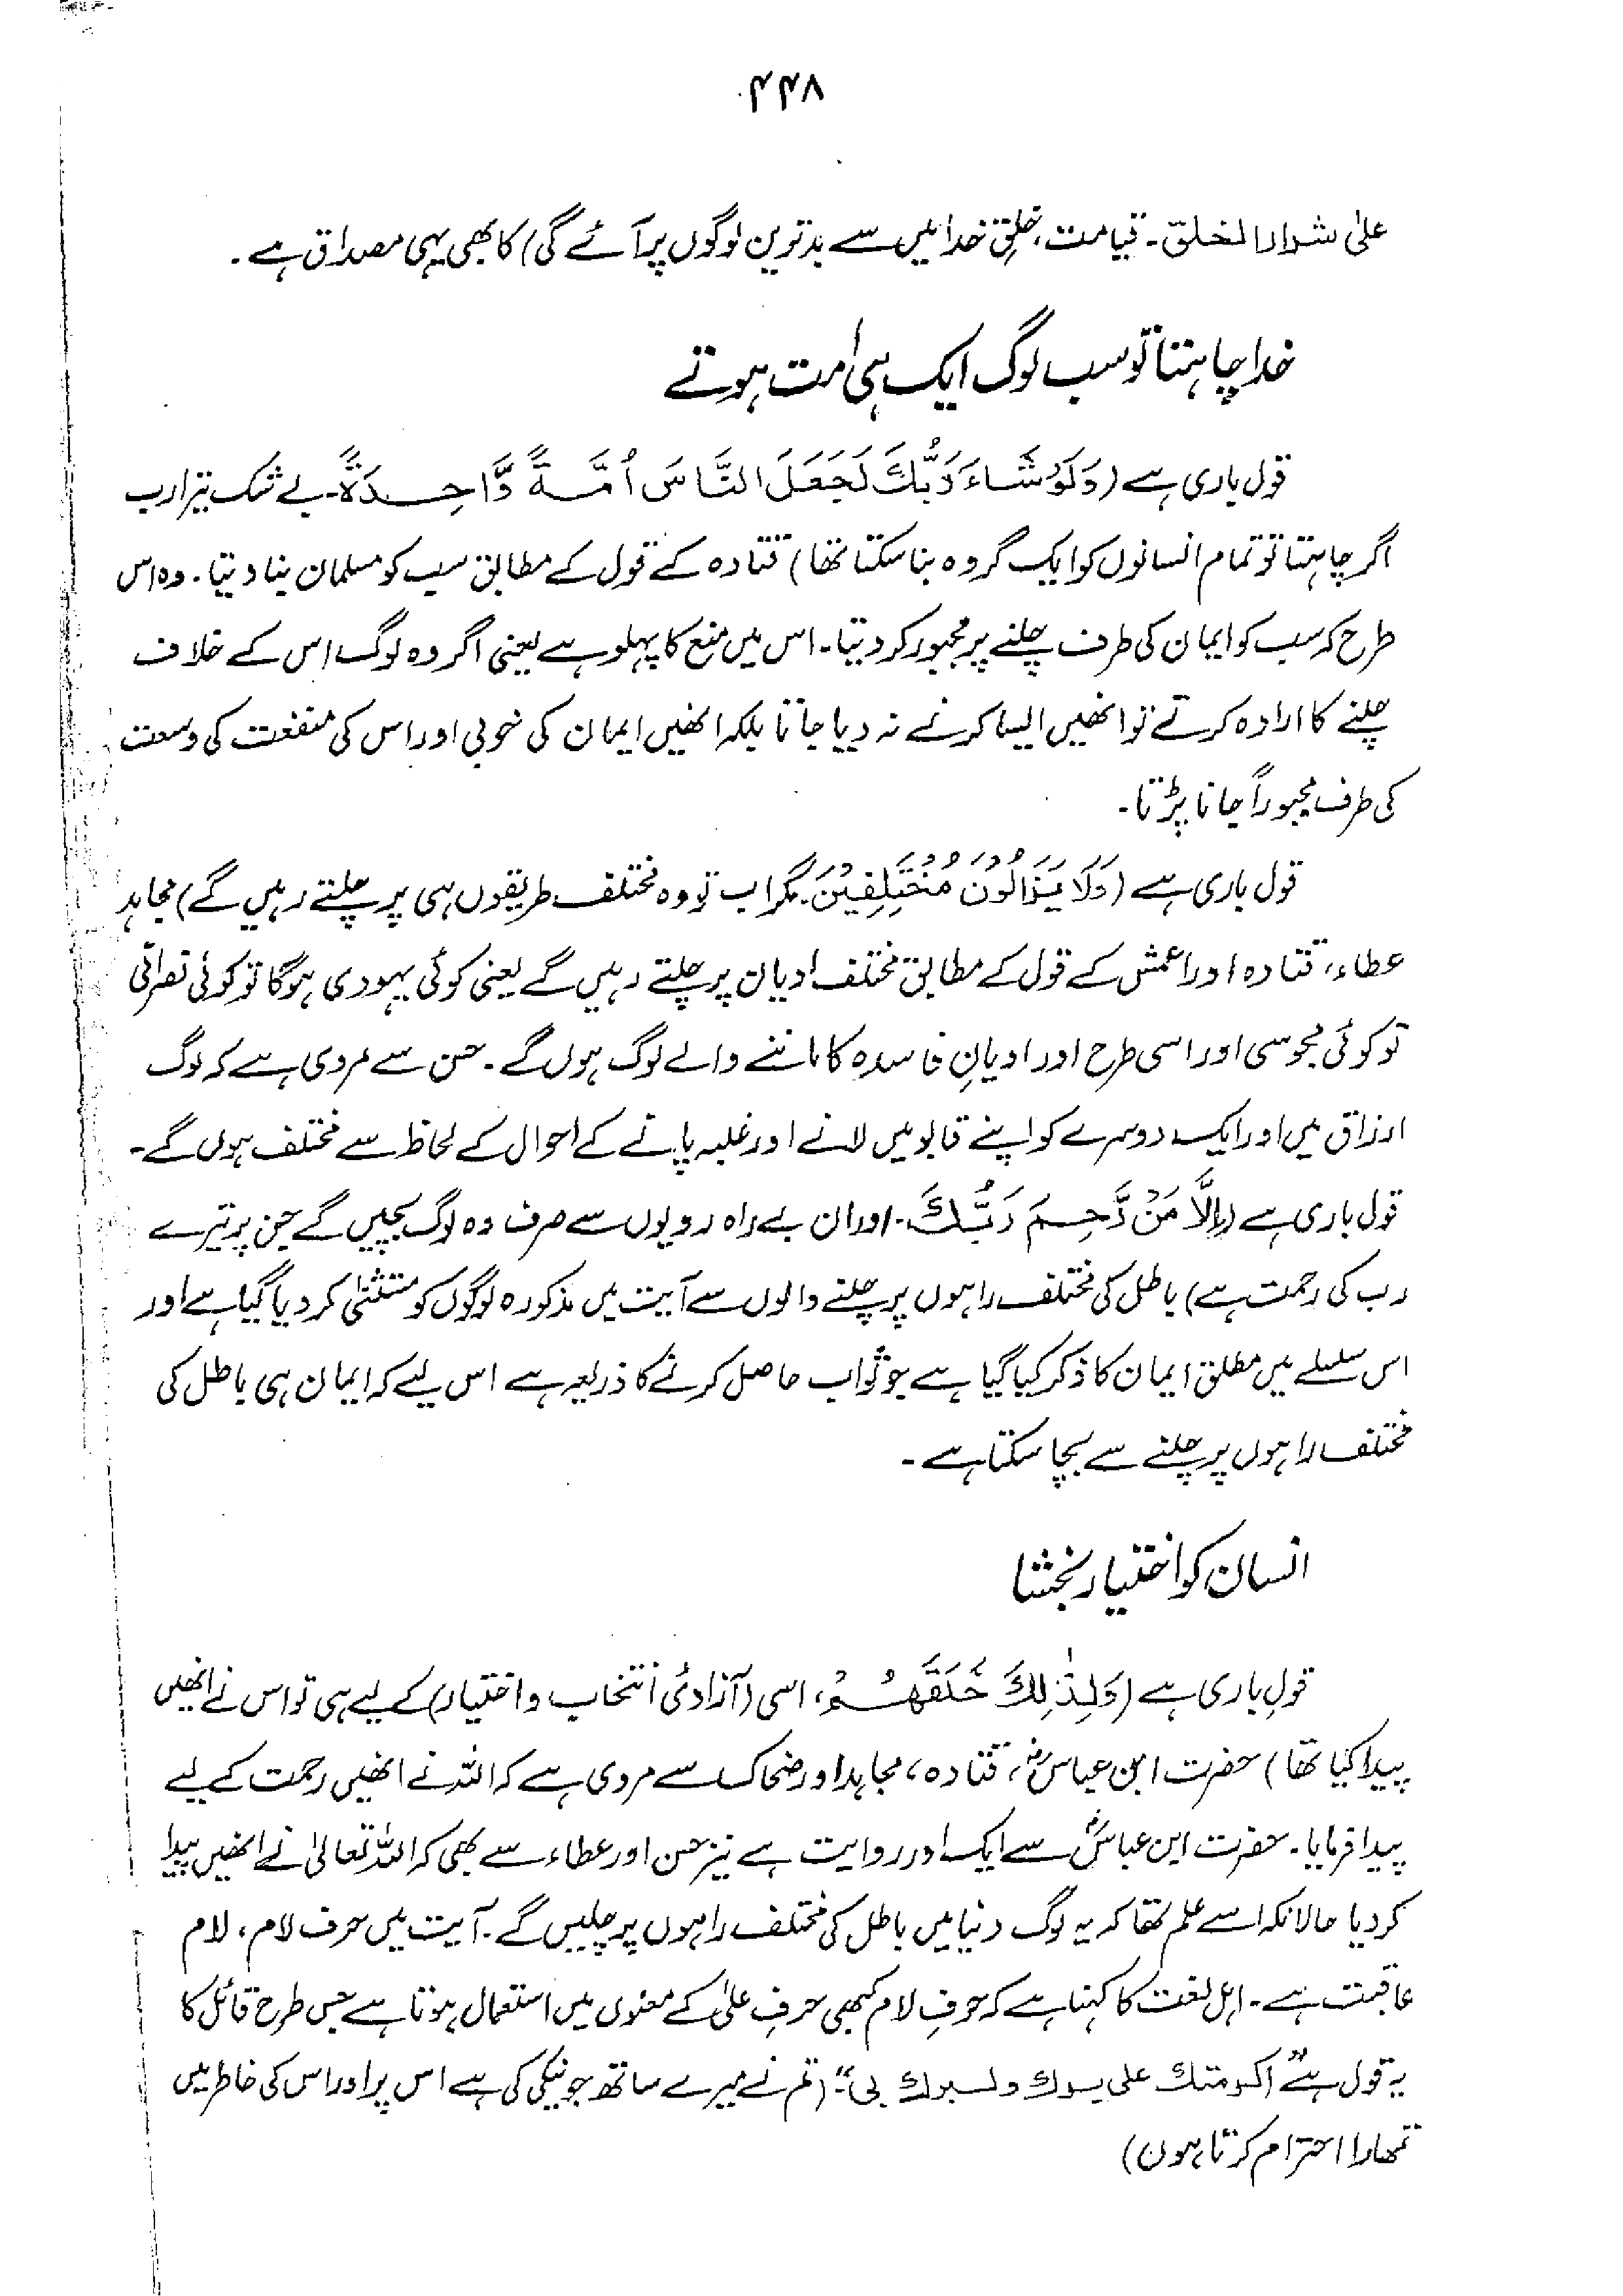 ۴۴۸
علیٰ شرار الخلق۔ قیامت، خلقِ خدا میں سے بدترین لوگوں پر آئے گی) کا بھی یہی مصداق ہے۔
خدا چاہتا تو سب لوگ ایک ہی امت ہوتے
قول باری ہے (وَلَوْ شَاءَ رَبُّكَ لَجَعَلَ النَّاسَ اُمَّةً وَّاحِدَةً۔ بے شک تیرا رب
اگر چاہتا تو تمام انسانوں کو ایک گروہ بنا سکتا تھا) قتادہ کے قول کے مطابق سب کو مسلمان بنا دیتا۔ وہ اس
طرح کہ سب کو ایمان کی طرف چلنے پر مجبور کر دیتا۔ اس میں منع کا پہلو ہے یعنی اگر وہ لوگ اس کے خلاف
چلنے کا ارادہ کرتے تو انھیں ایسا کرنے نہ دیا جاتا بلکہ انھیں ایمان کی خوبی اور اس کی منفعت کی وسعت
کی طرف مجبوراً جانا پڑتا۔
قول باری ہے (وَلَا يَزَالُوْنَ مُخْتَلِفِيْنَ۔ مگر اب تو وہ مختلف طریقوں ہی پر چلتے رہیں گے) مجاہد
عطاء، قتادہ اور اعمش کے قول کے مطابق مختلف ادیان پر چلتے رہیں گے یعنی کوئی یہودی ہوگا تو کوئی نصرانی
تو کوئی مجوسی اور اسی طرح اور ادیانِ فاسدہ کا ماننے والے لوگ ہوں گے۔ حسن سے مروی ہے کہ لوگ
ارزاق میں اور ایک دوسرے کو اپنے قابو میں لانے اور غلبہ پانے کے احوال کے لحاظ سے مختلف ہوں گے۔
قول باری ہے (اِلَّا مَنْ رَّحِمَ رَبُّكَ۔ اور ان بے راہ رویوں سے صرف وہ لوگ بچیں گے جن پر تیرے
رب کی رحمت ہے) باطل کی مختلف راہوں پر چلنے والوں سے آیت میں مذکورہ لوگوں کو مستثنیٰ کر دیا گیا ہے اور
اس سلسلے میں مطلق ایمان کا ذکر کیا گیا ہے جو ثواب حاصل کرنے کا ذریعہ ہے اس لیے کہ ایمان ہی باطل کی
مختلف راہوں پر چلنے سے بچا سکتا ہے۔
انسان کو اختیار بخشا
قولِ باری ہے (وَلِذٰلِكَ خَلَقَهُمْ، اسی (آزادیٔ انتخاب و اختیار) کے لیے ہی تو اس نے انھیں
پیدا کیا تھا) حضرت ابن عباسؓ، قتادہ، مجاہد اور ضحاک سے مروی ہے کہ اللہ نے انھیں رحمت کے لیے
پیدا فرمایا۔ حضرت ابن عباسؓ سے ایک اور روایت ہے نیز حسن اور عطاء سے بھی کہ اللہ تعالیٰ نے انھیں پیدا
کر دیا حالانکہ اسے علم تھا کہ یہ لوگ دنیا میں باطل کی مختلف راہوں پر چلیں گے۔ آیت میں حرف لام، لام
عاقبت ہے۔ اہل لغت کا کہنا ہے کہ حرفِ لام کبھی حرفِ علیٰ کے معنوں میں استعمال ہوتا ہے جس طرح قائل کا
یہ قول ہے "اکرمتك علی برك ولبرك بی" (تم نے میرے ساتھ جو نیکی کی ہے اس پر اور اس کی خاطر میں
تمھارا احترام کرتا ہوں)